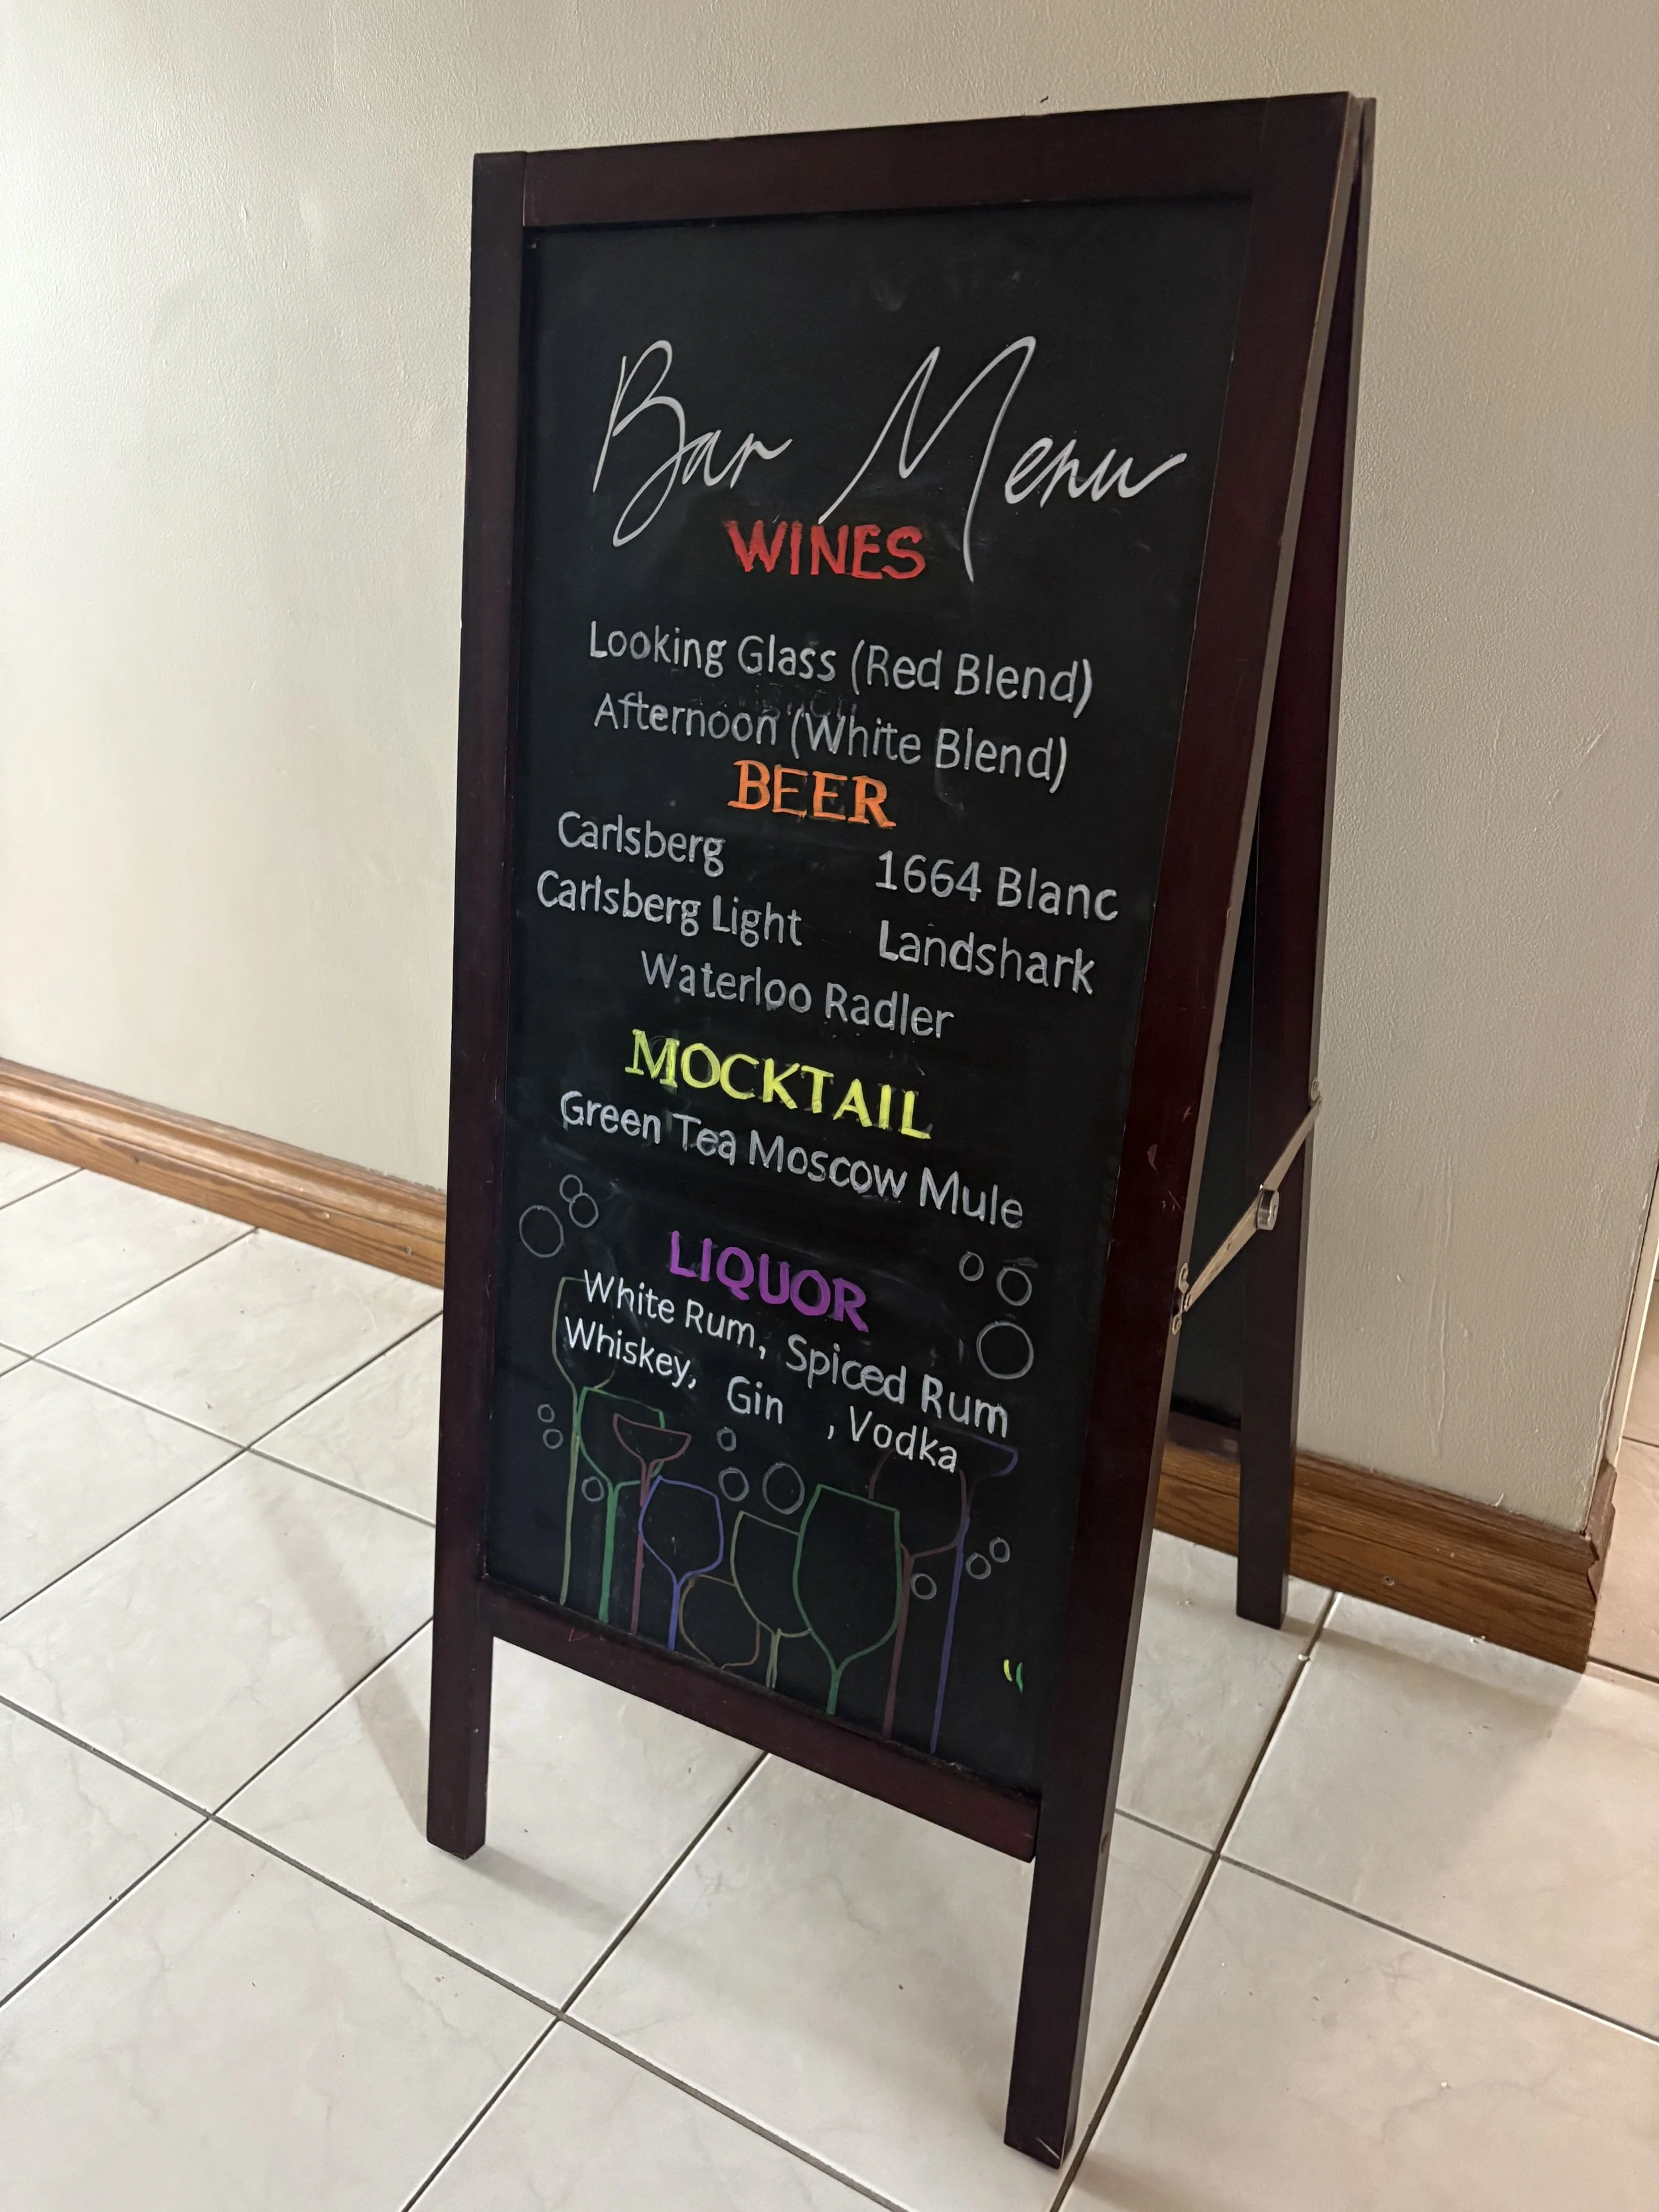 Bar Menu
WINES
Looking Glass (Red Blend)
Afternoon (White Blend)
BEER
Carlsberg 1664 Blanc
Carlsberg Light Landshark
Waterloo Radler
MOCKTAIL
Green Tea Moscow Mule
LIQUOR
White Rum, Spiced Rum
Whiskey, Gin , Vodka